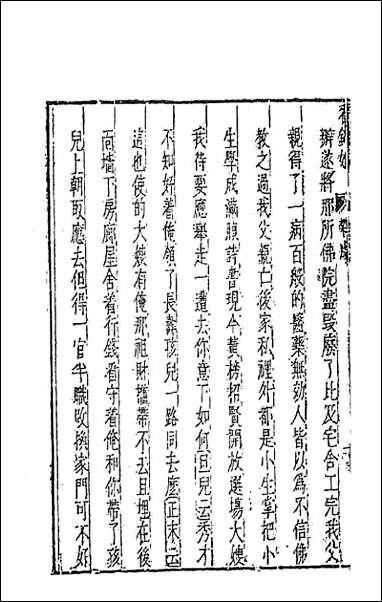 辦遂將那所佛院盡毀廢了比及宅舍工完我父
親得了一病百般的醫藥無效人皆以為不信佛
教之過我父親亡後家私裡外都是小生掌把小
生學成滿腹詩書現今黃榜招賢開放選場大嫂
我待要應舉走一遭去你意下如何旦兒云秀才
不知好着俺領了長壽孩兒一路同去麼正末云
這也使的大嫂有俺那祖財攜帶不去且埋在後
面墻下房廊屋舍着行錢看守着俺和你帶了孩
兒上朝取應去但得一官半職改換家門可不好